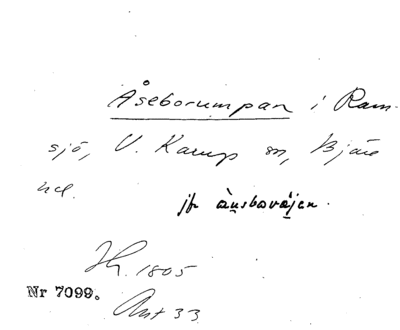 Åseborumpan i Ram-
sjö, V. Karup sn, Bjäre
hd.
jfr ànsbavájen.
Hh. 1805
Nr 7099.
Ant 33